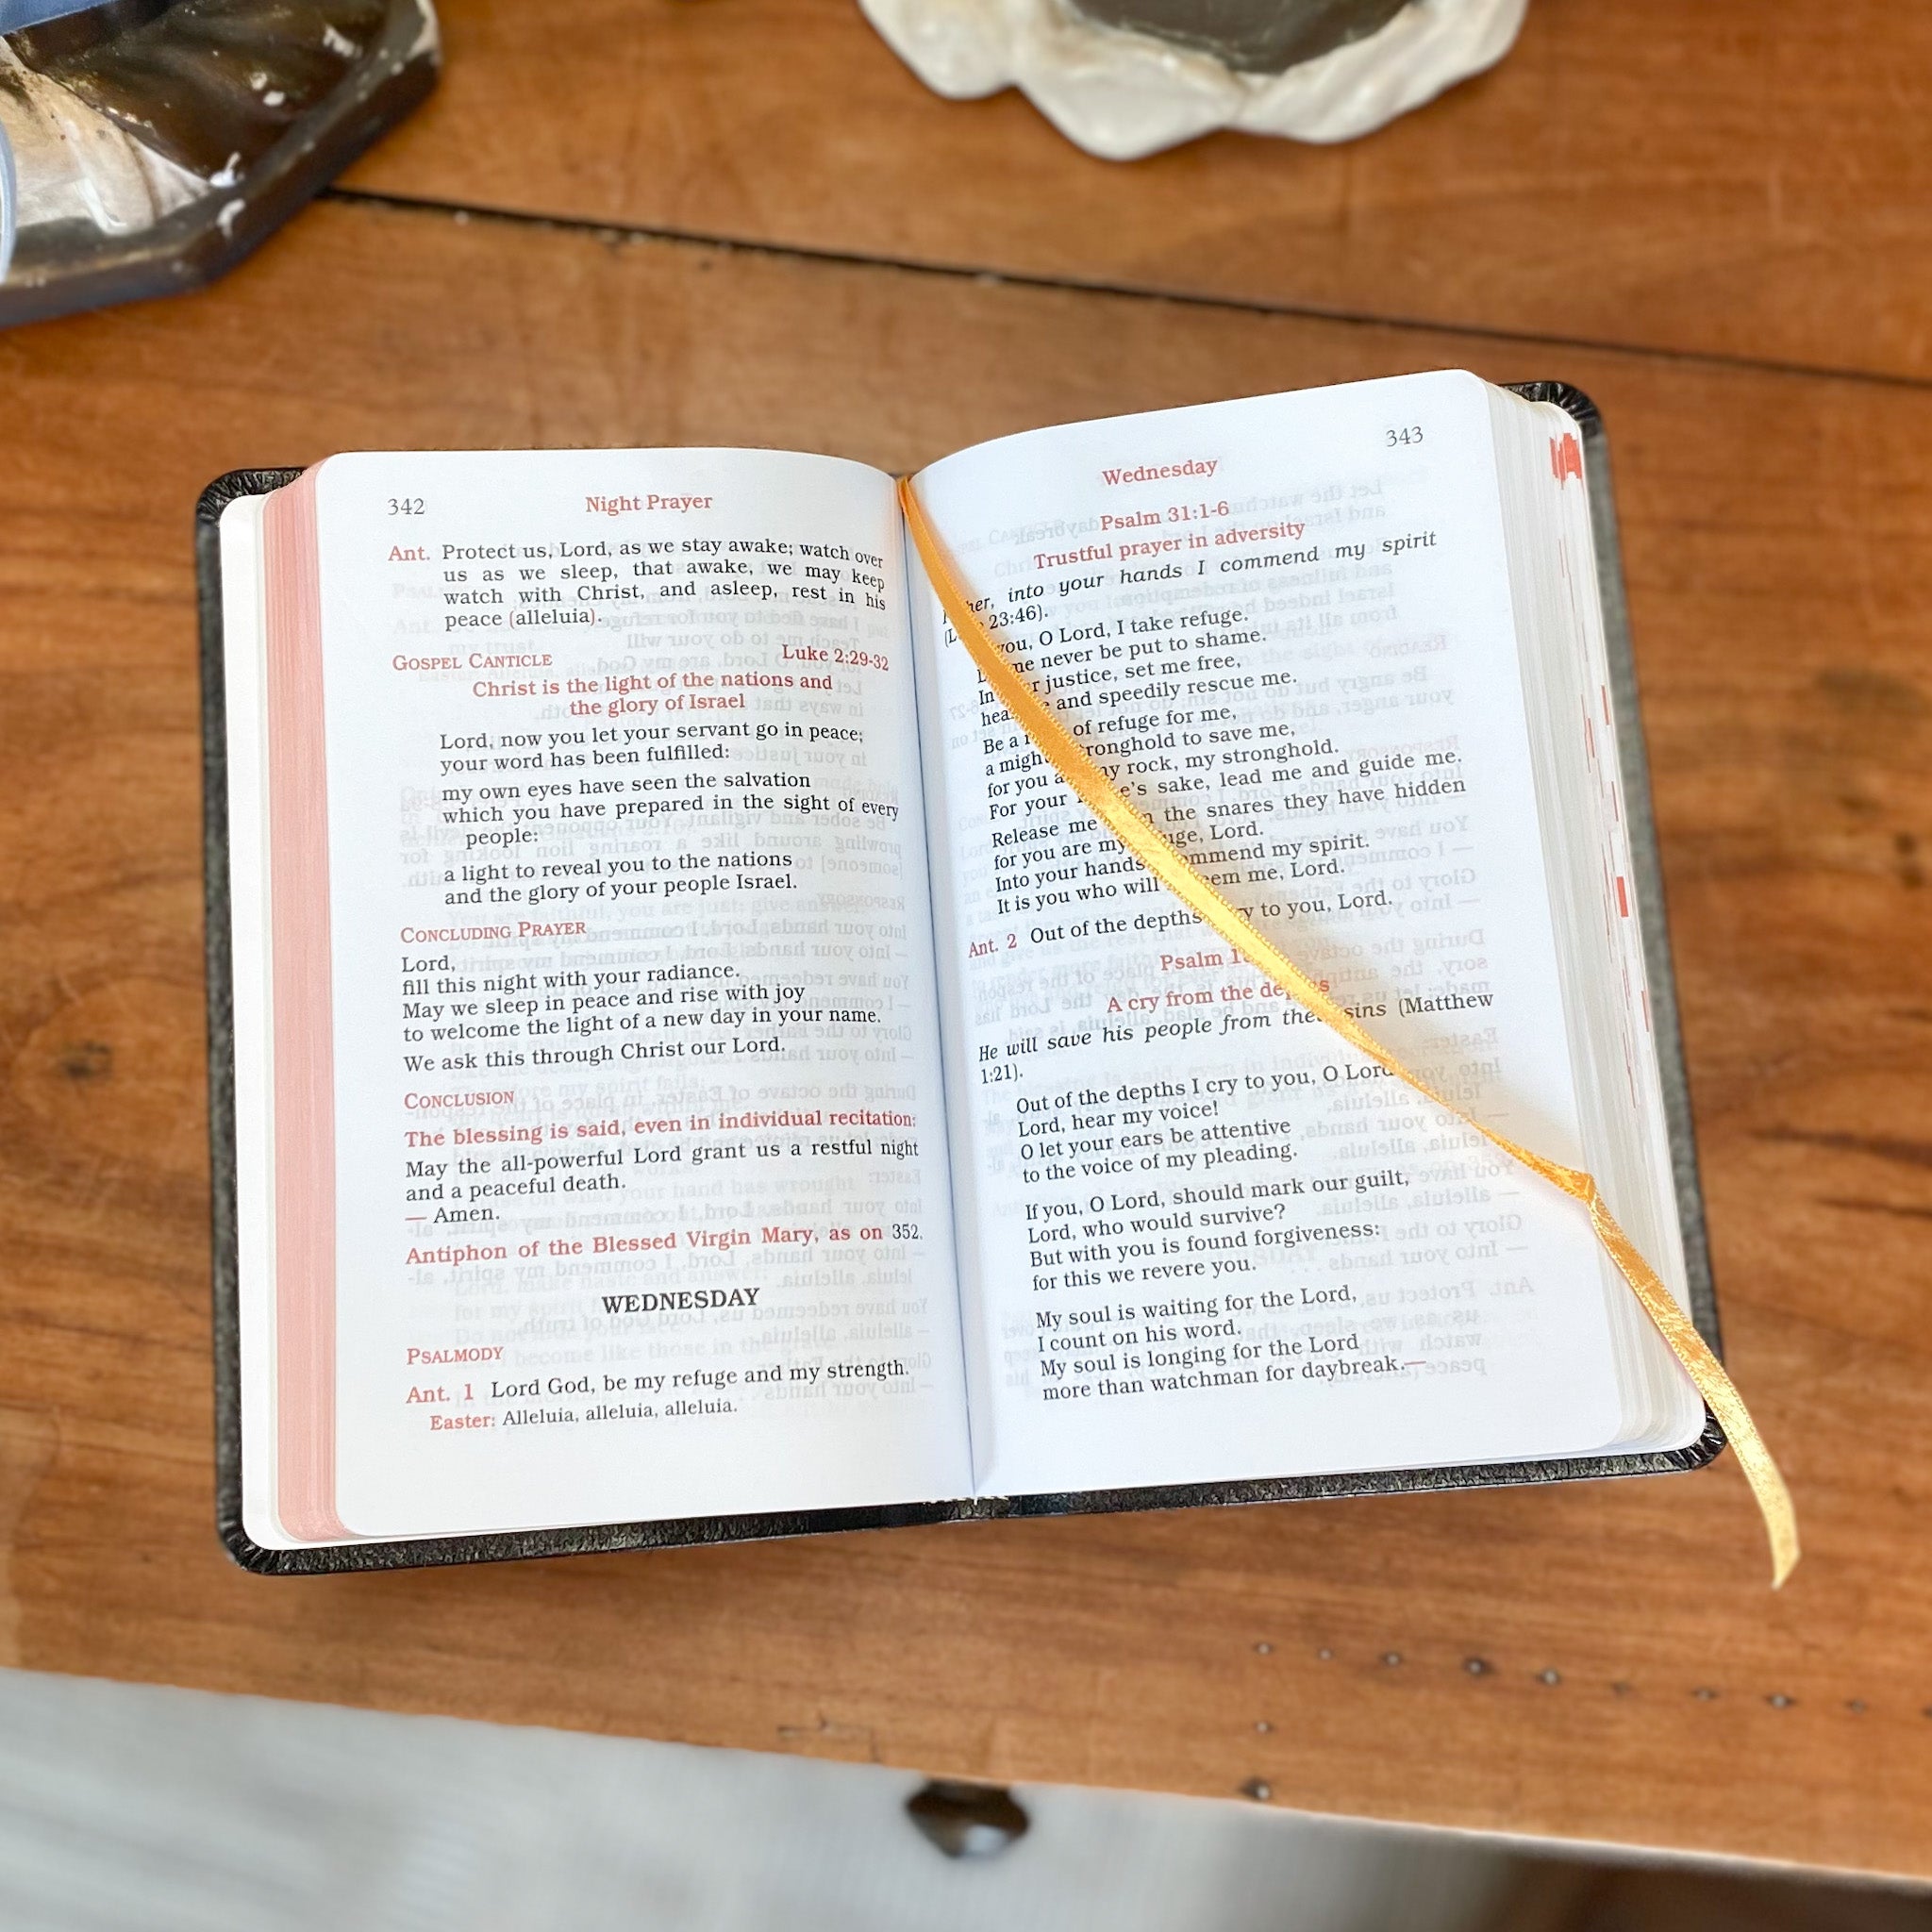 342
Night Prayer
Ant. Protect us, Lord, as we stay awake; watch over
us as we sleep, that awake, we may keep
watch with Christ, and asleep, rest in his
peace (alleluia).
GOSPEL CANTICLE Luke 2:29-32
Christ is the light of the nations and
the glory of Israel
Lord, now you let your servant go in peace;
your word has been fulfilled:
my own eyes have seen the salvation
which you have prepared in the sight of every
people:
a light to reveal you to the nations
and the glory of your people Israel.
CONCLUDING PRAYER
Lord,
fill this night with your radiance.
May we sleep in peace and rise with joy
to welcome the light of a new day in your name.
We ask this through Christ our Lord.
CONCLUSION
The blessing is said, even in individual recitation:
May the all-powerful Lord grant us a restful night
and a peaceful death.
— Amen.
Antiphon of the Blessed Virgin Mary, as on 352.
WEDNESDAY
PSALMODY
Ant. 1 Lord God, be my refuge and my strength.
Easter: Alleluia, alleluia, alleluia.
343
Wednesday
Psalm 31:1-6
Trustful prayer in adversity
into your hands I commend my spirit
23:46).
you, O Lord, I take refuge.
me never be put to shame.
In justice, set me free,
and speedily rescue me.
Be a of refuge for me,
a stronghold to save me,
for you my rock, my stronghold.
For your sake, lead me and guide me.
Release me the snares they have hidden
for you are my Lord.
Into your hands commend my spirit.
It is you who will me, Lord.
Ant. 2 Out of the depths to you, Lord.
Psalm
A cry from the depths
He will save his people from their sins (Matthew
1:21).
Out of the depths I cry to you, O Lord
Lord, hear my voice!
O let your ears be attentive
to the voice of my pleading.
If you, O Lord, should mark our guilt,
Lord, who would survive?
But with you is found forgiveness:
for this we revere you.
My soul is waiting for the Lord,
I count on his word.
My soul is longing for the Lord
more than watchman for daybreak.—